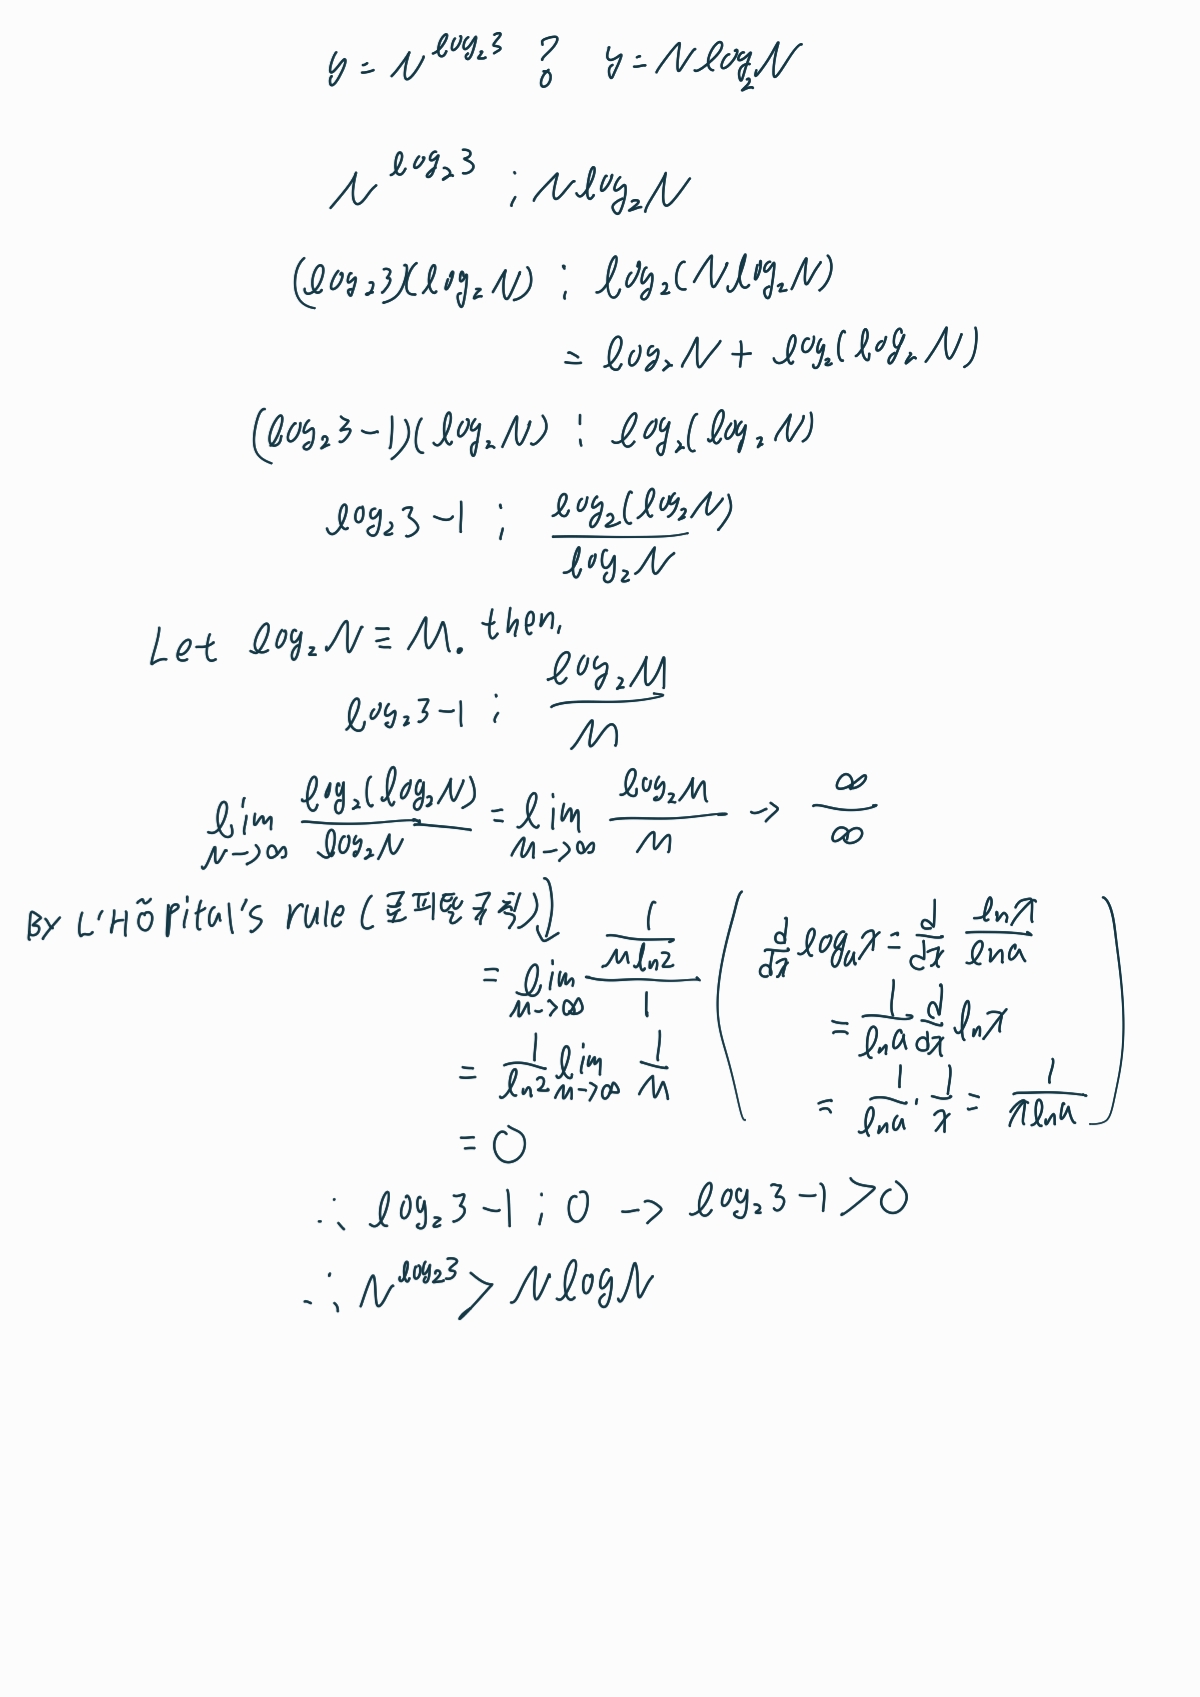 y = N^{log₂3} ? y = N log₂N
N^{log₂3} ; N log₂N
(log₂3)(log₂N) ; log₂(N log₂N)
= log₂N + log₂(log₂N)
(log₂3-1)(log₂N) ; log₂(log₂N)
log₂3-1 ; log₂(log₂N) / log₂N
Let log₂N ≡ M. then,
log₂3-1 ; log₂M / M
lim_{N→∞} log₂(log₂N) / log₂N = lim_{M→∞} log₂M / M → ∞/∞
By L'Hõpital's rule (로피탈 규칙)↓
= lim_{M→∞} (1/(M ln2)) / 1
= 1/ln2 lim_{M→∞} 1/M
= 0
(d/dx logₐx = d/dx lnx/lna
= 1/lna d/dx lnx
= 1/lna · 1/x = 1/(x lna))
∴ log₂3-1 ; 0 → log₂3-1 > 0
∴ N^{log₂3} > N log N